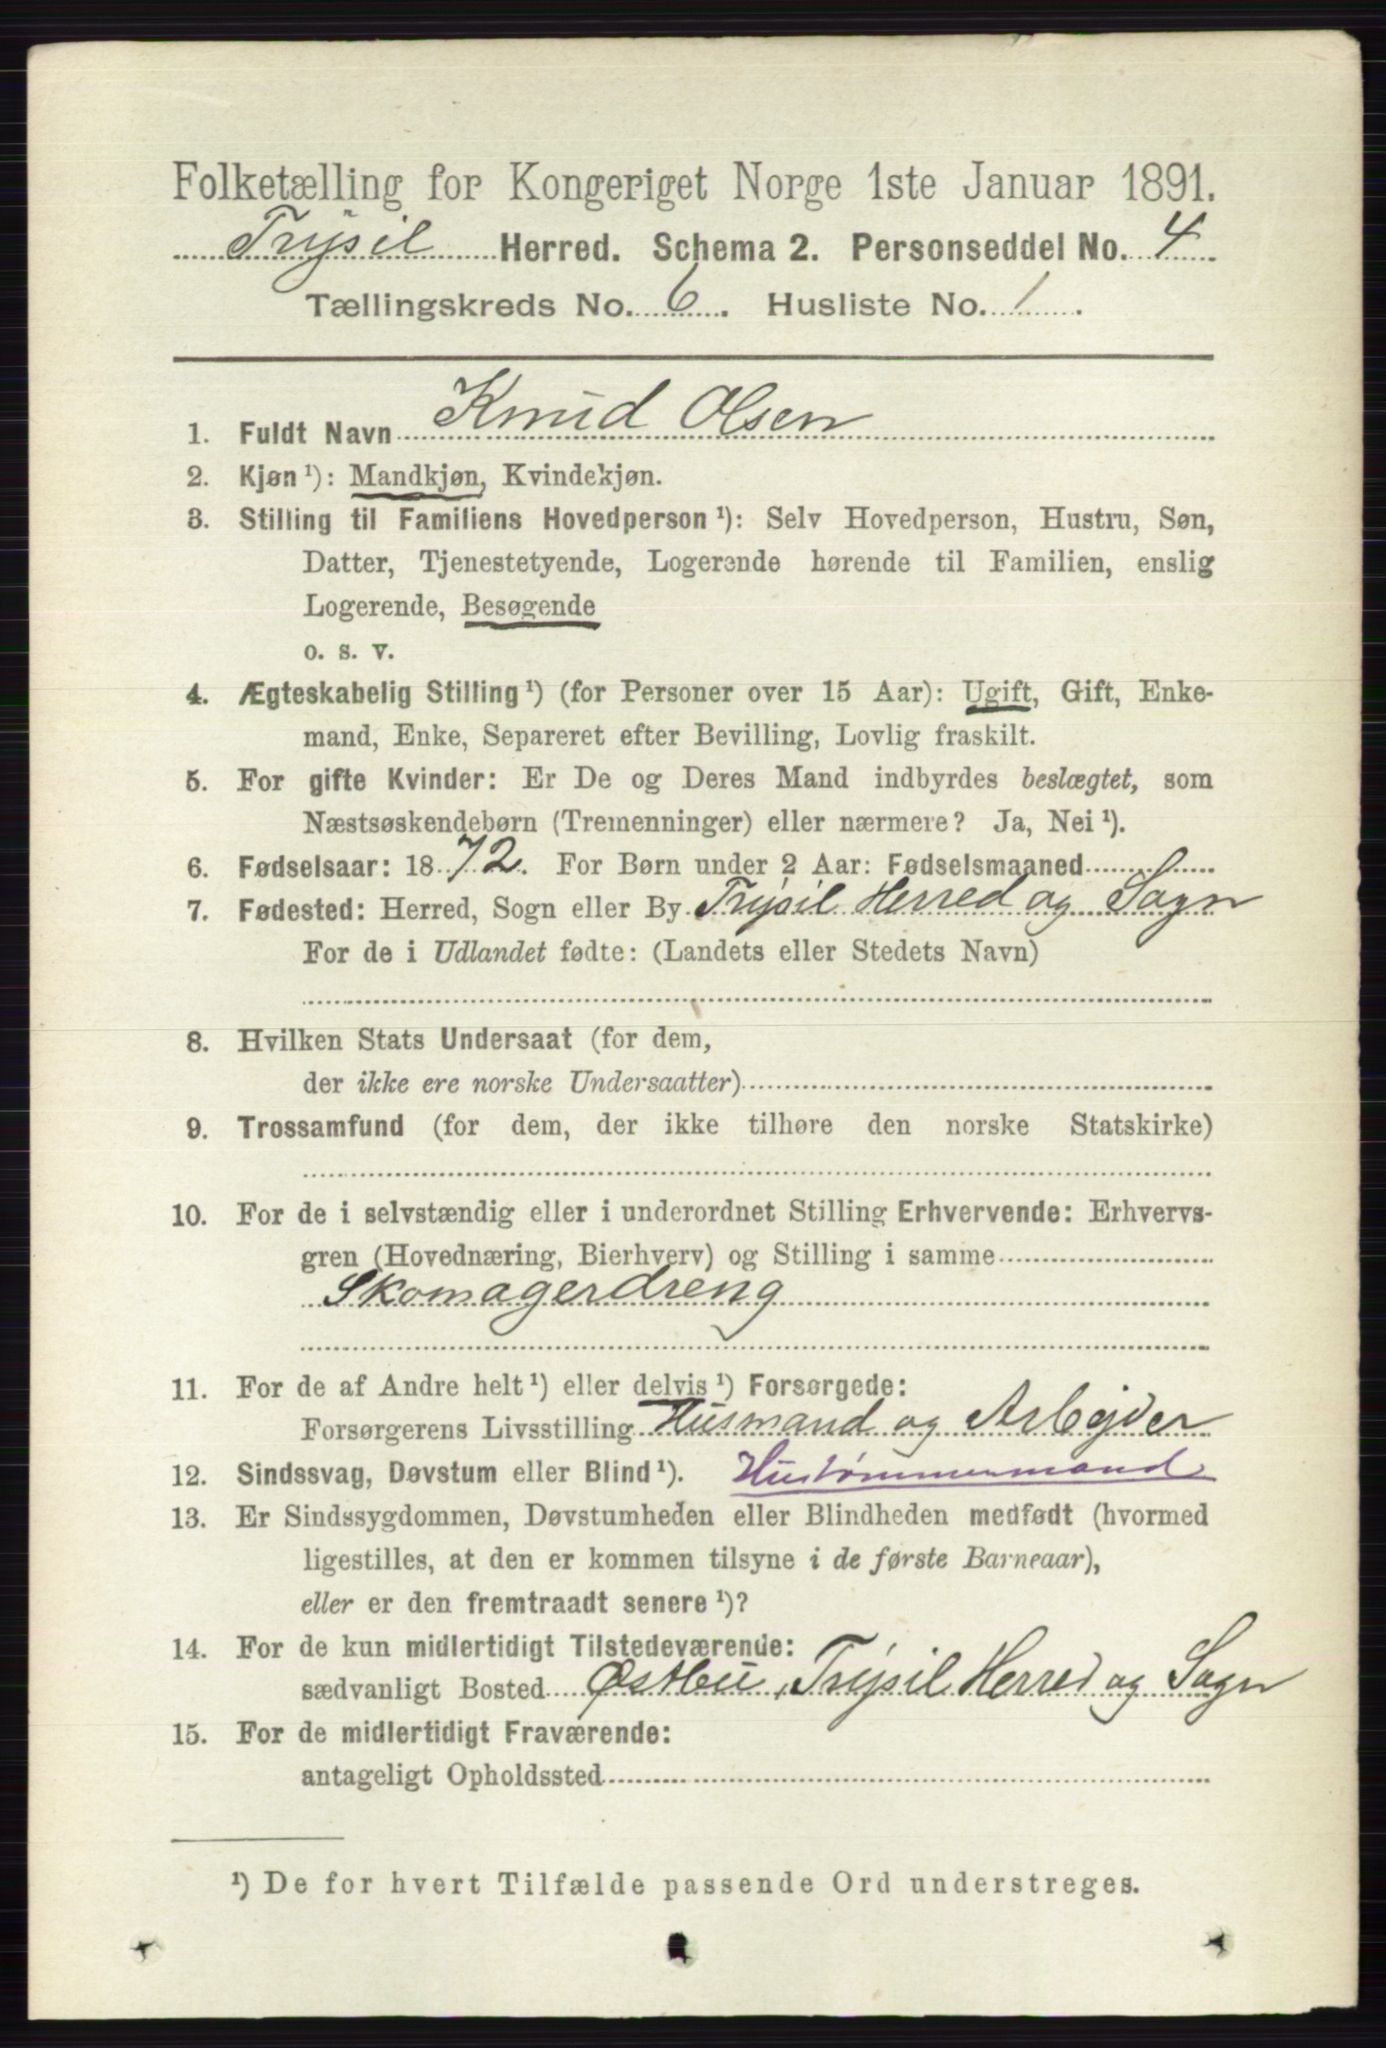 Folketælling for Kongeriget Norge 1ste Januar 1891.
Trysil Herred. Schema 2. Personseddel No. 4
Tællingskreds No. 6. Husliste No. 1.
1. Fuldt Navn Knud Olsen
2. Kjøn ¹): Mandkjøn, Kvindekjøn.
3. Stilling til Familiens Hovedperson ¹): Selv Hovedperson, Hustru, Søn,
Datter, Tjenestetyende, Logerende hørende til Familien, enslig
Logerende, Besøgende
o. s. v.
4. Ægteskabelig Stilling ¹) (for Personer over 15 Aar): Ugift, Gift, Enke-
mand, Enke, Separeret efter Bevilling, Lovlig fraskilt.
5. For gifte Kvinder: Er De og Deres Mand indbyrdes beslægtet, som
Næstsøskendebørn (Tremenninger) eller nærmere? Ja, Nei ¹).
6. Fødselsaar: 1872. For Børn under 2 Aar: Fødselsmaaned
7. Fødested: Herred, Sogn eller By Trysil Herred og Sogn
For de i Udlandet fødte: (Landets eller Stedets Navn)
8. Hvilken Stats Undersaat (for dem,
der ikke ere norske Undersaatter)
9. Trossamfund (for dem, der ikke tilhøre den norske Statskirke)
10. For de i selvstændig eller i underordnet Stilling Erhvervende: Erhvervs-
gren (Hovednæring, Bierhverv) og Stilling i samme
Skomagerdreng
11. For de af Andre helt ¹) eller delvis ¹) Forsørgede:
Forsørgerens Livsstilling Husmand og Arbejder
12. Sindssvag, Døvstum eller Blind ¹). Hustømmermand
13. Er Sindssygdommen, Døvstumheden eller Blindheden medfødt (hvormed
ligestilles, at den er kommen tilsyne i de første Barneaar),
eller er den fremtraadt senere ¹)?
14. For de kun midlertidigt Tilstedeværende:
sædvanligt Bosted Østbu, Trysil Herred og Sogn
15. For de midlertidigt Fraværende:
antageligt Opholdssted
¹) De for hvert Tilfælde passende Ord understreges.